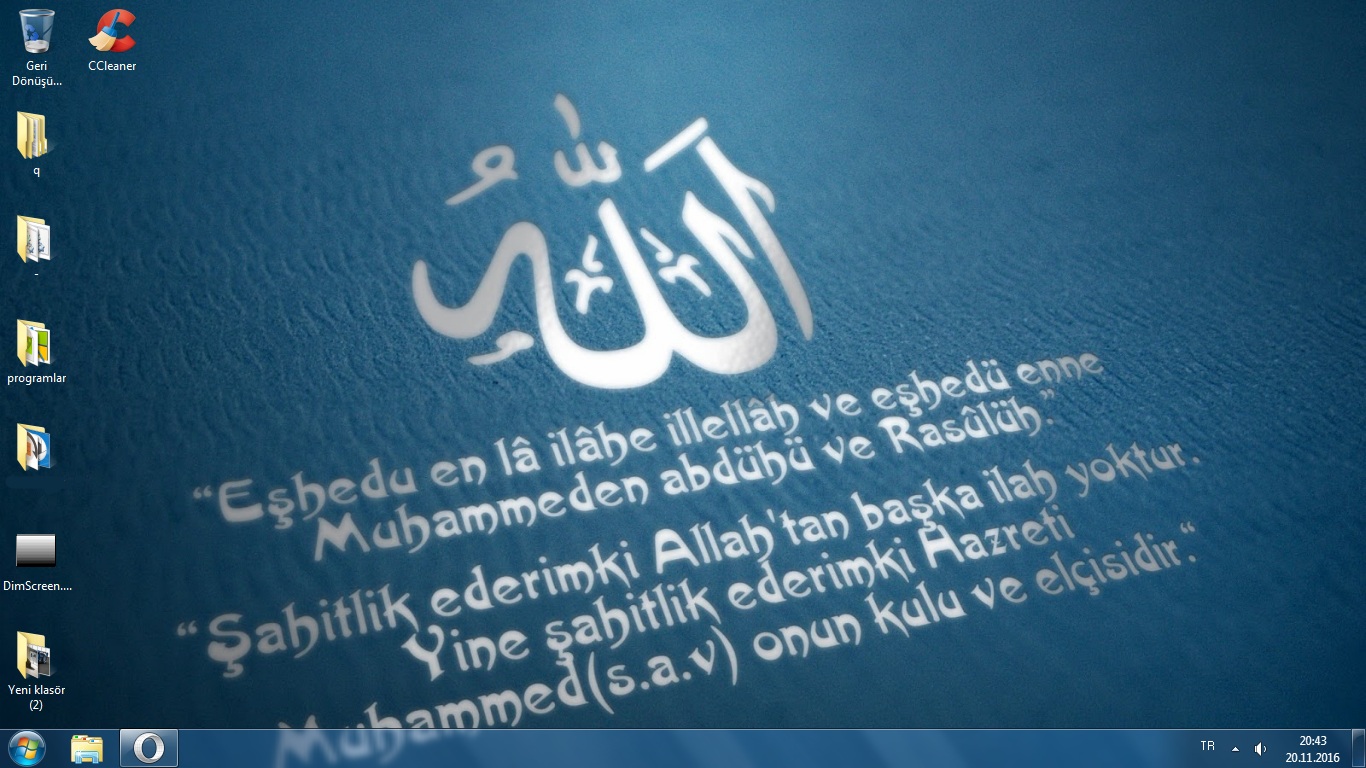 Geri
Dönüşü...
CCleaner
q
-
programlar
DimScreen....
Yeni klasör
(2)
الله
“Eşhedu en lâ ilâhe illellâh ve eşhedü enne
Muhammeden abdühü ve Rasûlüh.”
“Şahitlik ederimki Allah'tan başka ilah yoktur.
Yine şahitlik ederimki Hazreti
Muhammed(s.a.v) onun kulu ve elçisidir.“
TR
20:43
20.11.2016